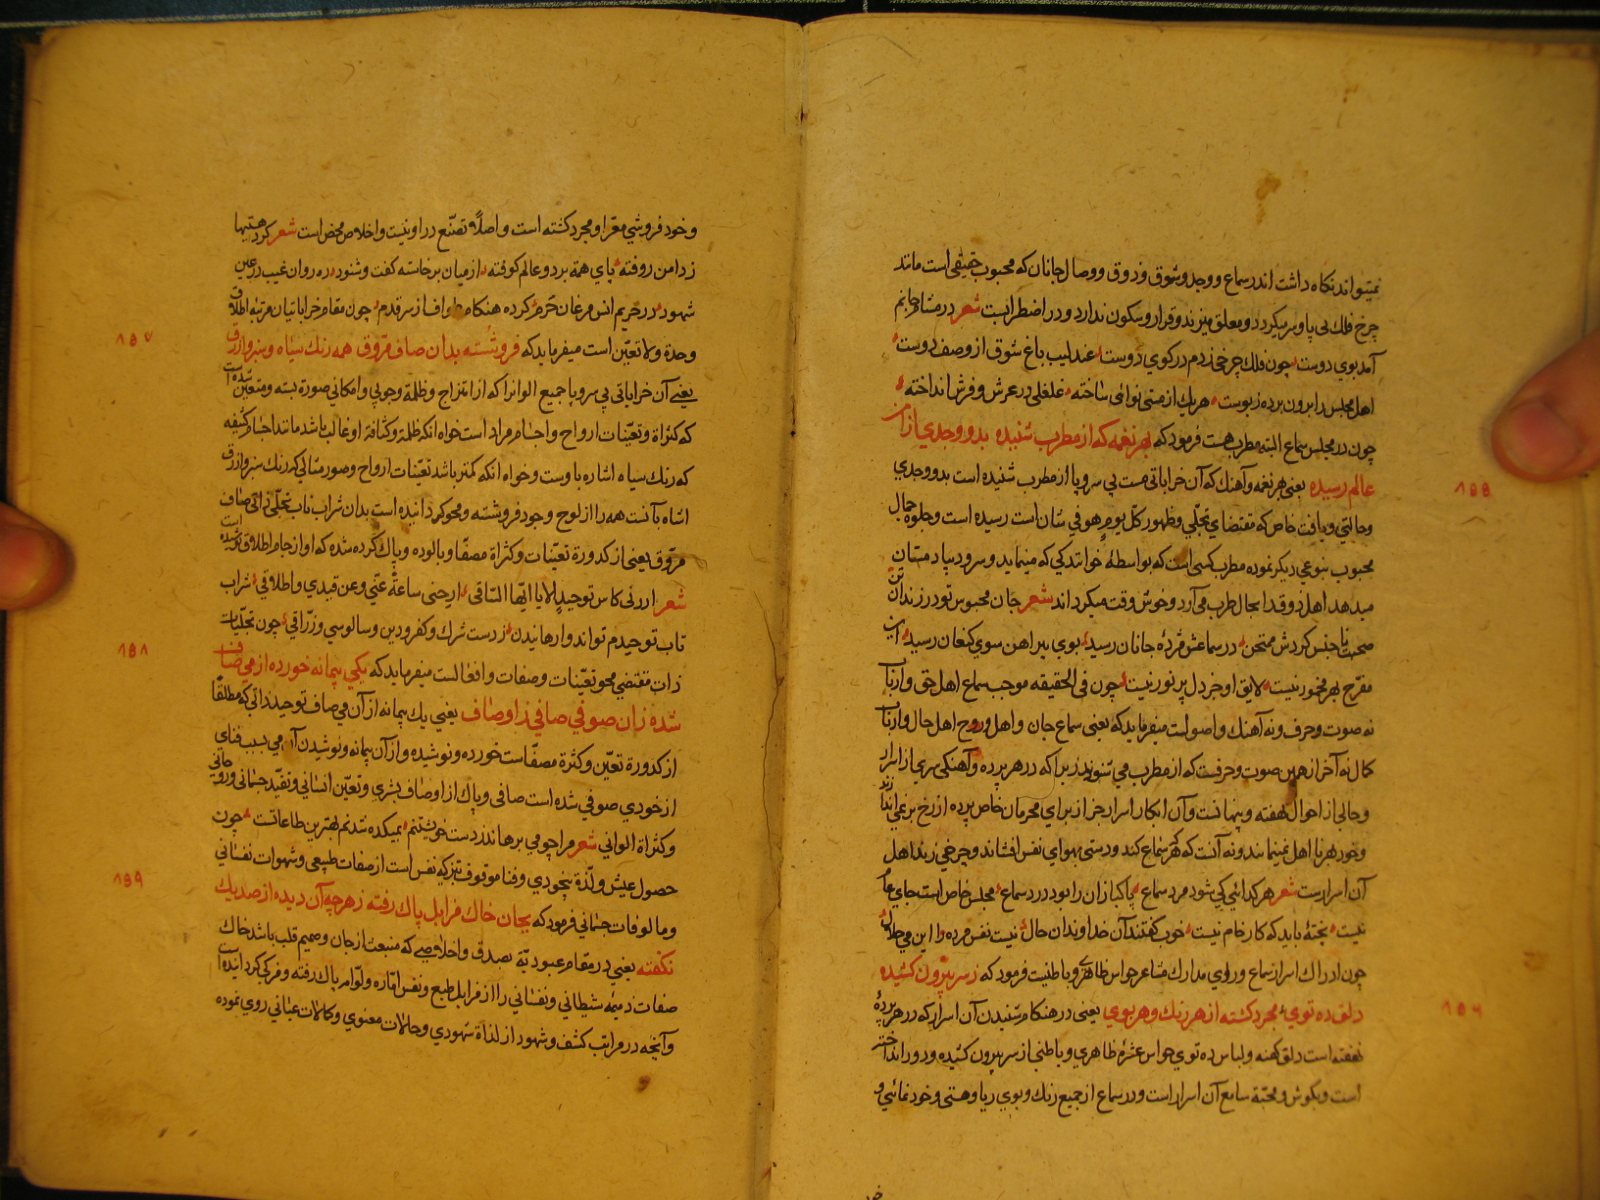 نمیتواند نکاه داشت اندر سماع و وجد و شوق و ذوق و وصال جانان که محبوب حقیقی است مانند
چرخ فلک بی پا و سر میکردد و معلق میزند و قرار و سکون ندارد و در اضطرابست شعر در مشام جانم
آمد بوی دوست چون فلک چرخی زدم در کوی دوست عندلیب باغ شوق از وصف دوست
اهل مجلس را برون برده ز پوست هر یک از مستی نوائی ساخته غلغلی در عرش و فرش انداخته
چون در مجلس سماع البته مطرب هست فرمود که بهر نغمه که از مطرب شنیده بدو وجدی از آن
عالم رسیده یعنی هر نغمه و آهنک که آن خراباتی مست بی سر و پا از مطرب شنیده است بدو وجدی
۱۸۵
وحالتی و یافت خاص که مقتضای تجلی و ظهور کل یوم هو فی شان است رسیده است و جلوه جمال
محبوب بنوعی دیکر نموده مطرب کسی است که بواسطه خوانندکی که مینماید و سرود بیاد مستان
میدهد اهل ذوق را بحال طرب می آرد و خوش وقت میکرداند شعر جان محبوس تو در زندان تن
صحبت ناجنس کردش ممتحن در سماعش مژده جانان رسید بوی پیراهن سوی کنعان رسید این
مفرح بهر مخمور نیست لایق او جز دل پر نور نیست چون فی الحقیقه موجب سماع اهل حق و ارباب
نه صوت و حرف و نه آهنک و اصولست میفرماید که یعنی سماع جان و اهل و روح اهل حال و ارباب
کمال نه آخر از همین صوت و حرفست که از مطرب می شنوند زیرا که در هر پرده و آهنکی سری از اسرار
و حالی از احوال نهفته و پنهانست و آن ابکار اسرار جز از برای محرمان خاص پرده از رخ بر نمی اندازند
و خود بهر نا اهل نمینمایند و نه آنست که هر که سماع کند و دستی بهوای نفس افشاند و چرخی زند اهل
آن اسرارست شعر هر کدائی کی شود مرد سماع پاکبازان را بود درد سماع مجلس خاص است جای عام
نیست پختهٔ باید که کار خام نیست خوب کفتند آن خداوندان حال نیست نفس مرده را این می حلال
چون ادراک اسرار سماع ورای مدارک مشاعر حواس ظاهری و باطنیست فرمود که ز سر بیرون کشیده
دلق ده توی مجرد کشته از هر رنک و هر بوی یعنی در هنکام شنیدن آن اسرار که در هر پردهٔ
۱۸۶
نهفته است دلق کهنه و لباس ده توی حواس عشرهٔ ظاهری و باطنی از سر بیرون کشیده و دور انداخته
است و بکوش و محبت سامع آن اسرار است و در سماع از جمیع رنک و بوی ریا و هستی و خود نمائی و
و خود فروشی معرا و مجرد کشته است و اصلاً تصنع در او نیست و اخلاص محض است شعر کرد هستیها
ز دامن روفته پای همت بر دو عالم کوفته از میان برخاسته کفت و شنود ره روان غیب در عین
شهود در حریم انس مرغان حرم کرده هنکام طواف از سر قدم چون مقام خراباتیان مرتبه اطلاق
وحدة و لا تعین است میفرماید که فرو شسته بدان صاف مروق همه رنک سیاه و سبز و ازرق
۱۸۷
یعنی آن خراباتی بی سر و پا جمیع الوان را که از امتزاج و ظلمة وجوبی و امکانی صورة بسته و متعین شده است
که کثراة و تعینات ارواح و اجسام مراد است خواه انکه ظلمة و کثافة او غالب باشد مانند اجسام کثیفه
که رنک سیاه اشاره باوست و خواه انکه کمتر باشد تعینات ارواح و صور مثالی که رنک سبز و ازرق
اشاه بآنست همه را از لوح وجود فرو شسته و محو کردانیده است بدان شراب ناب تجلی ذاتی صاف
مروق یعنی از کدورة تعینات و کثراة مصفا و پالوده و پاک کرده شده که او از جام اطلاق نوشیده است
شعر ادرنی کاس توحید الا یا ایها الساقی ارحنی ساعة عنی و عن قیدی و اطلاقی شراب
ناب توحیدم تواند وارهانیدن ز دست شرک و کفر و دین و سالوسی و زراقی چون تجلیات
ذات مقتضی محو تعینات و صفات و افعالست میفرماید که یکی پیمانه خورده از می صاف
۱۸۸
شده زان صوفی صافی ز اوصاف یعنی یک پیمانه از آن می صاف توحید ذاتی که مطلقا
از کدورة تعین و کثرة مصفاست خورده و نوشیده و از آن پیمانه و نوشیدن آن می بسبب فنای
از خودی صوفی شده است صافی و پاک از اوصاف بشری و تعین انسانی و تقید جسمانی و روحانی
و کثراة الوانی شعر مرا چو می برهاند ز دست خویشتنم بمیکده شدنم بهترین طاعاتست چون
حصول عیش و لذة بیخودی و فنا موقوف تزکیه نفس است از صفات طبیعی و شهوات نفسانی
و مالوفات جسمانی فرمود که بجان خاک مزابل پاک رفته ز هر چه آن دیده از صد یک
۱۸۹
نکفته یعنی در مقام عبودیة بصدق و اخلاصی که منبعث از جان و صمیم قلب باشد خاک
صفات ذمیمهٔ شیطانی و نفسانی را از مزابل طبع و نفس اماره و لوامه پاک رفته و مزکی کردانیده است
و آنچه در مراتب کشف و شهود از لذاة شهودی و حالات معنوی و کمالات عیانی روی نموده